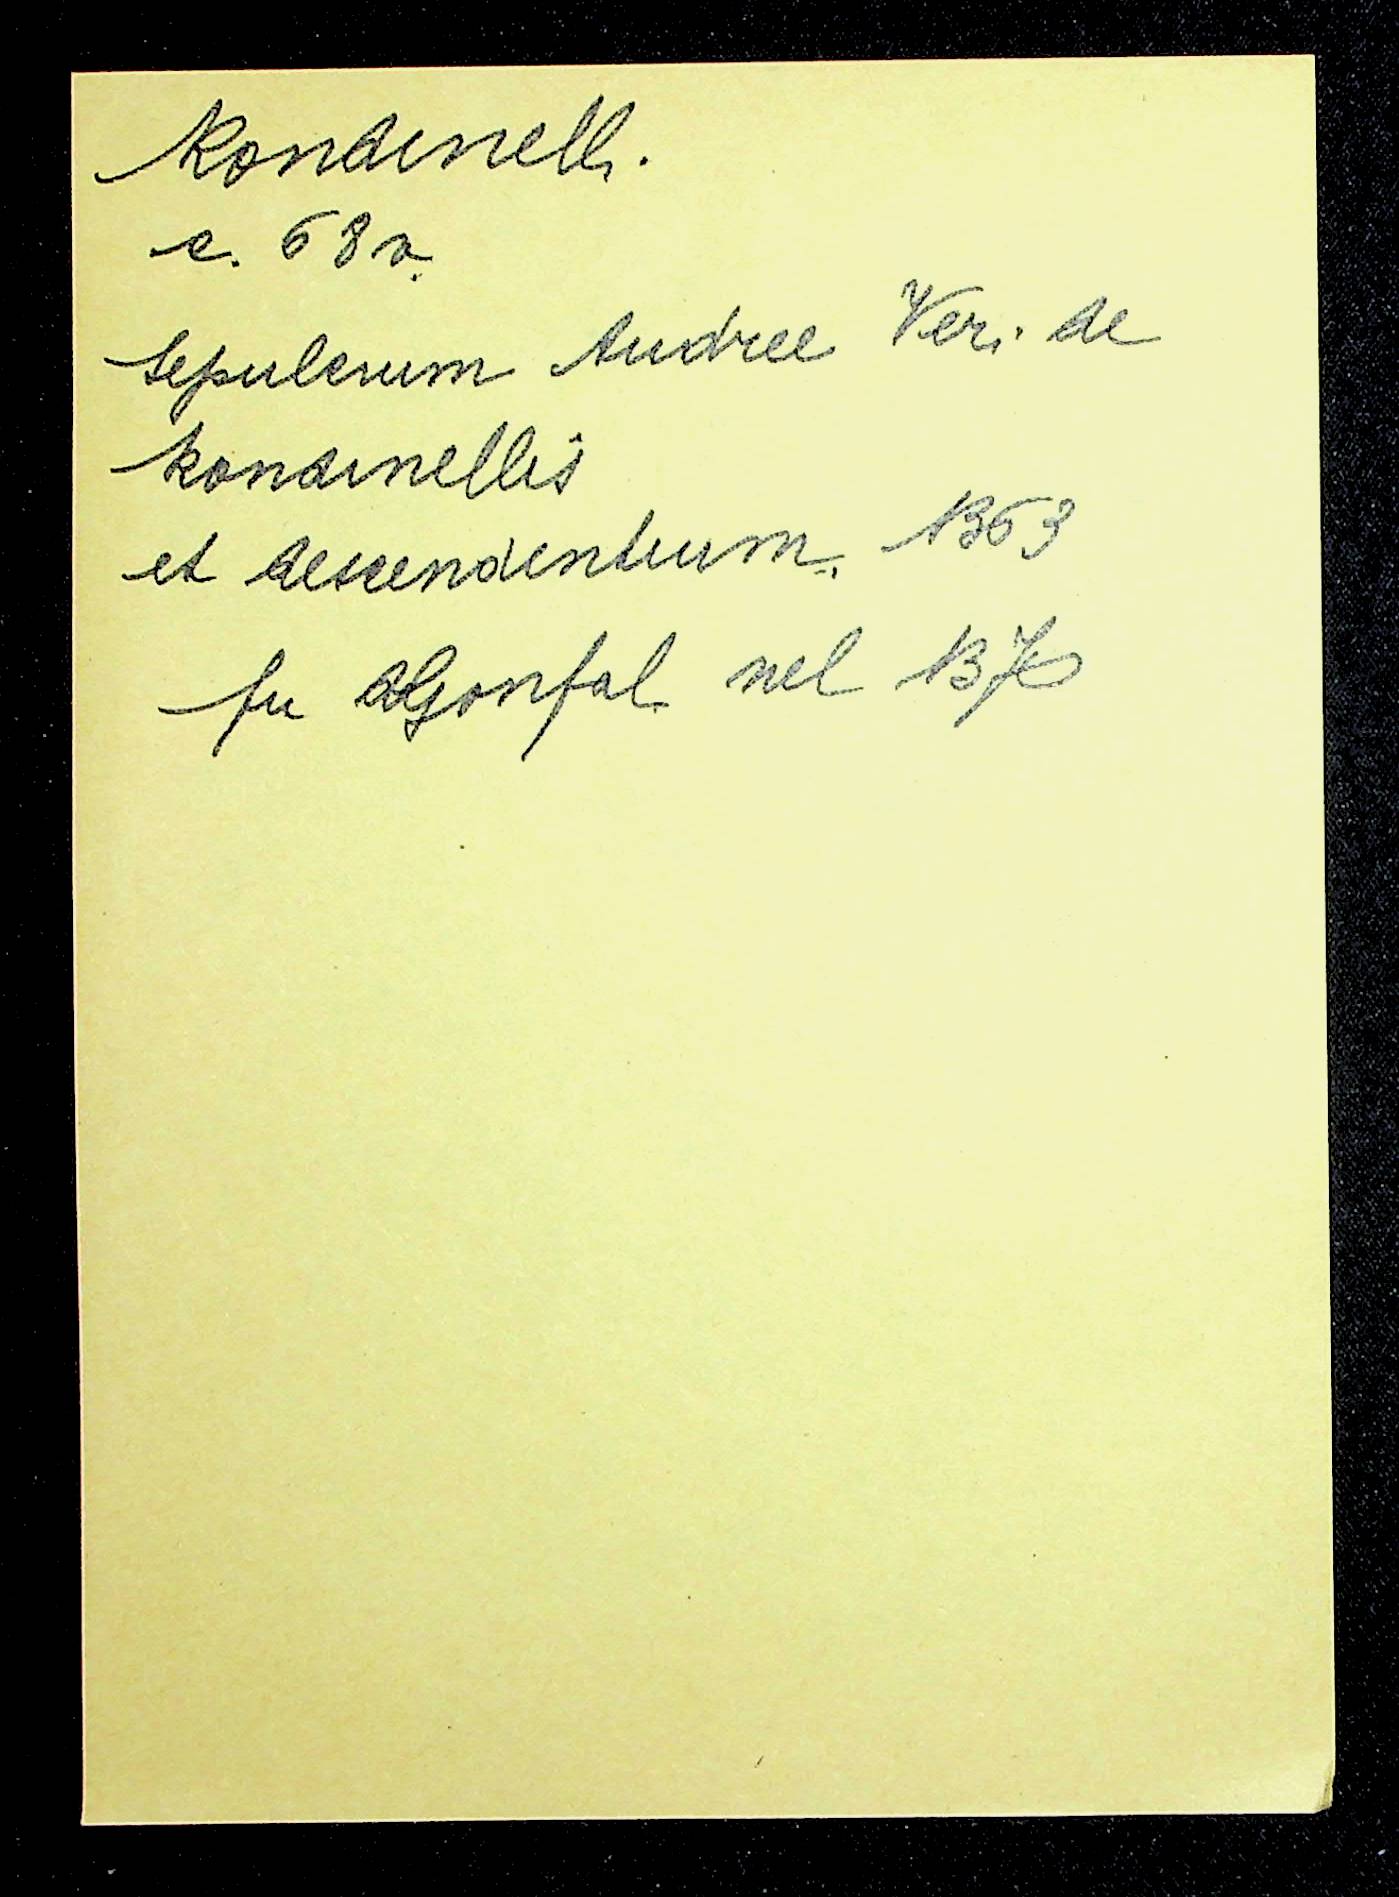 Rondinelli.
c. 68 v.
Sepulcrum Andree Veri de
Rondinellis
et descendentium. 1363
fu Gonfal. nel